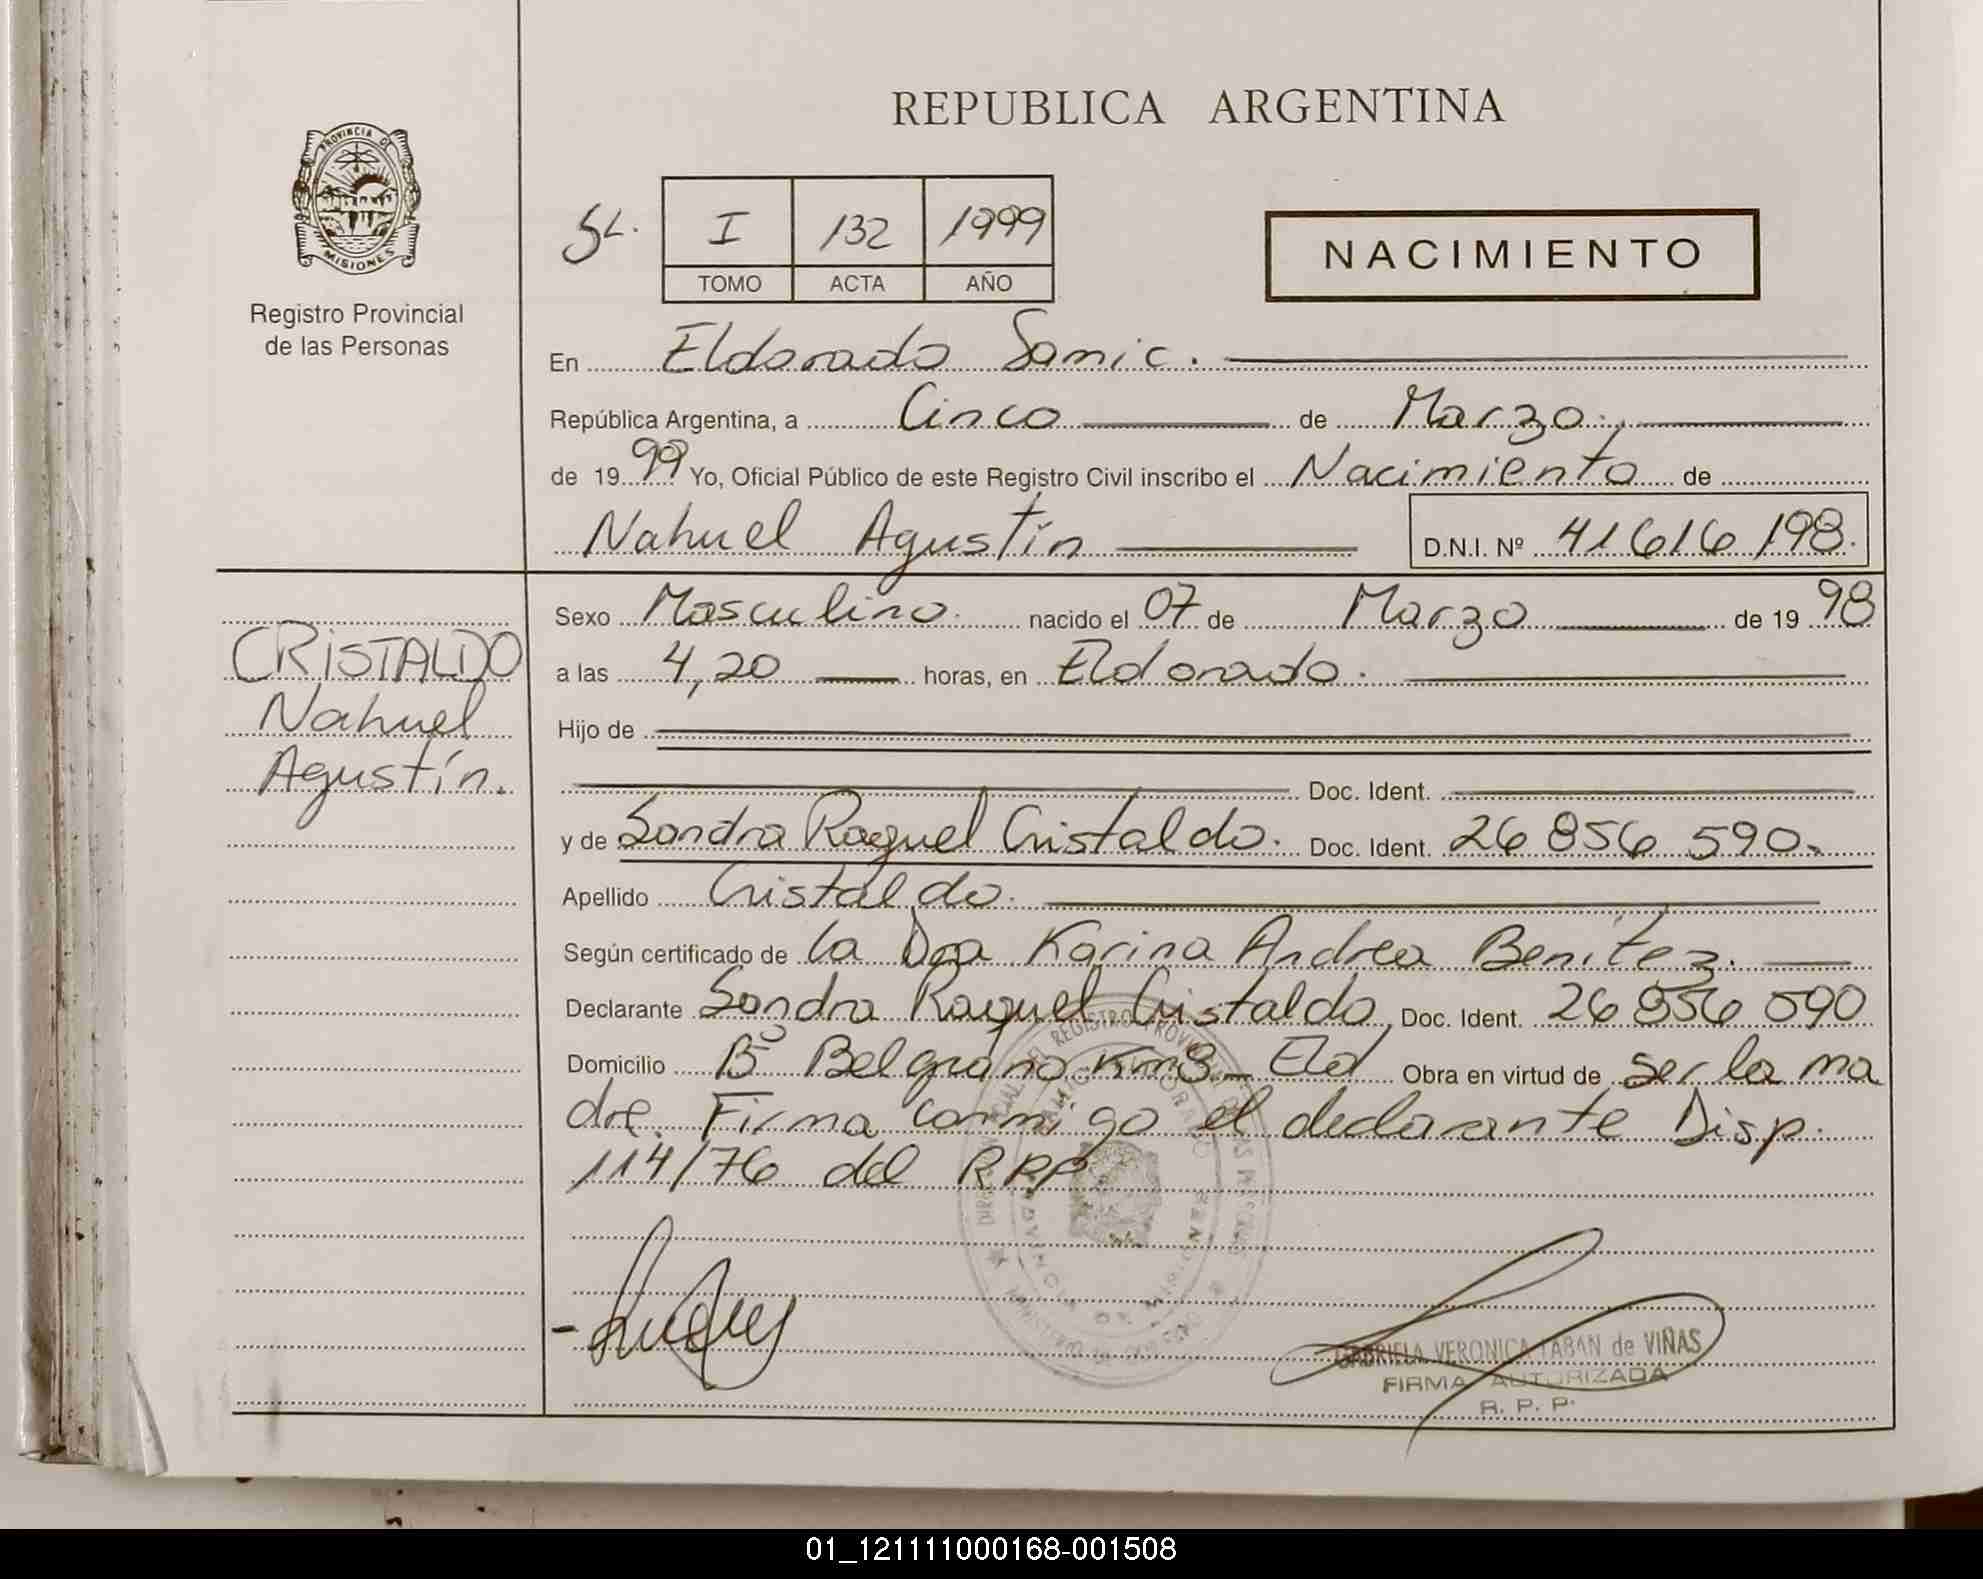 PROVINCIA DE
MISIONES
Registro Provincial
de las Personas
REPUBLICA ARGENTINA
I 132 1999
TOMO ACTA AÑO
NACIMIENTO
En Eldorado Samic.
República Argentina, a Cinco de Marzo.
de 19 99 Yo, Oficial Público de este Registro Civil inscribo el Nacimiento de
Nahuel Agustín D.N.I. Nº 41616198.
CRISTALDO
Nahuel
Agustín.
Sexo Masculino. nacido el 07 de Marzo de 19 98
a las 4,20 horas, en Eldorado.
Hijo de
Doc. Ident.
y de Sandra Raquel Cristaldo. Doc. Ident. 26 856 590.
Apellido Cristaldo.
Según certificado de la Dra Karina Andrea Benítez.
Declarante Sandra Raquel Cristaldo, Doc. Ident. 26 856 590
Domicilio Bº Belgrano Km3 - Eld Obra en virtud de ser la ma
dre. Firma conmigo el declarante Disp.
114/76 del RRP
GABRIELA VERONICA TABAN de VIÑAS
FIRMA AUTORIZADA
R. P. P.
01_121111000168-001508